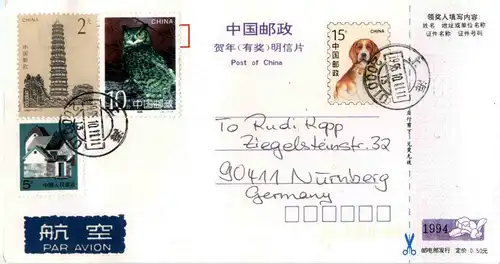 2元
CHINA
10分
中国邮政
中国邮政
贺年(有奖)明信片
Post of China
15分
中国邮政
领奖人填写内容:
姓名 地址或单位名称
证件名称 证件号码
上海
To Rudi Kopp
Ziegelsteinstr. 32
90411 Nürnberg
Germany
5分
中国人民邮政
航空
PAR AVION
1994
邮电部发行 定价 0.50元